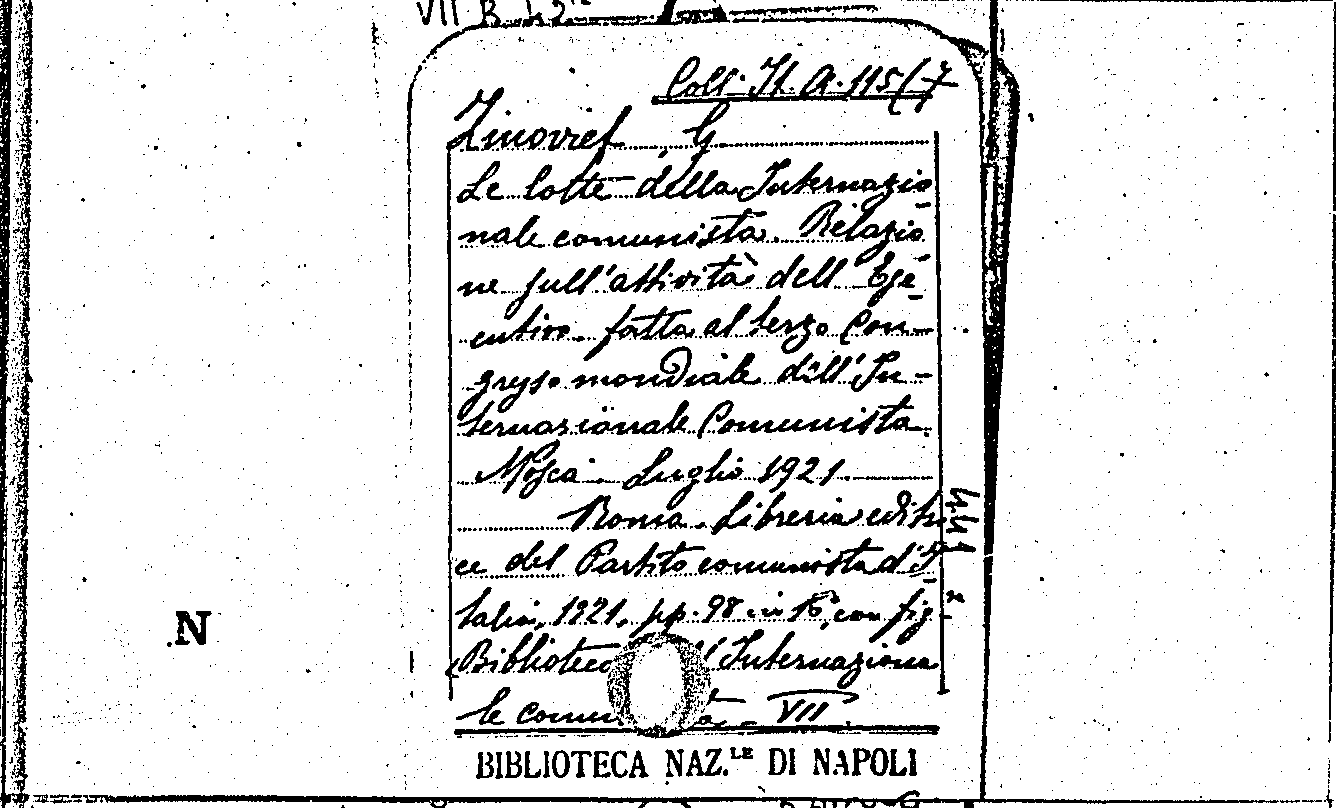 VII B 42
Coll. It. A. 115/7
Zinovief, G.
Le lotte della Internazio-
nale comunista. Relazio-
ne sull'attività dell'Ese-
cutivo fatta al terzo Con-
gresso mondiale dell'In-
ternazionale Comunista.
Mosca. Luglio 1921.
Roma. Libreria editri
ce del Partito comunista d'I-
talia, 1921, pp. 98 in 16°, con fig.
(Bibliotec l'Internaziona
le comun ta - VII
N
BIBLIOTECA NAZ.LE DI NAPOLI